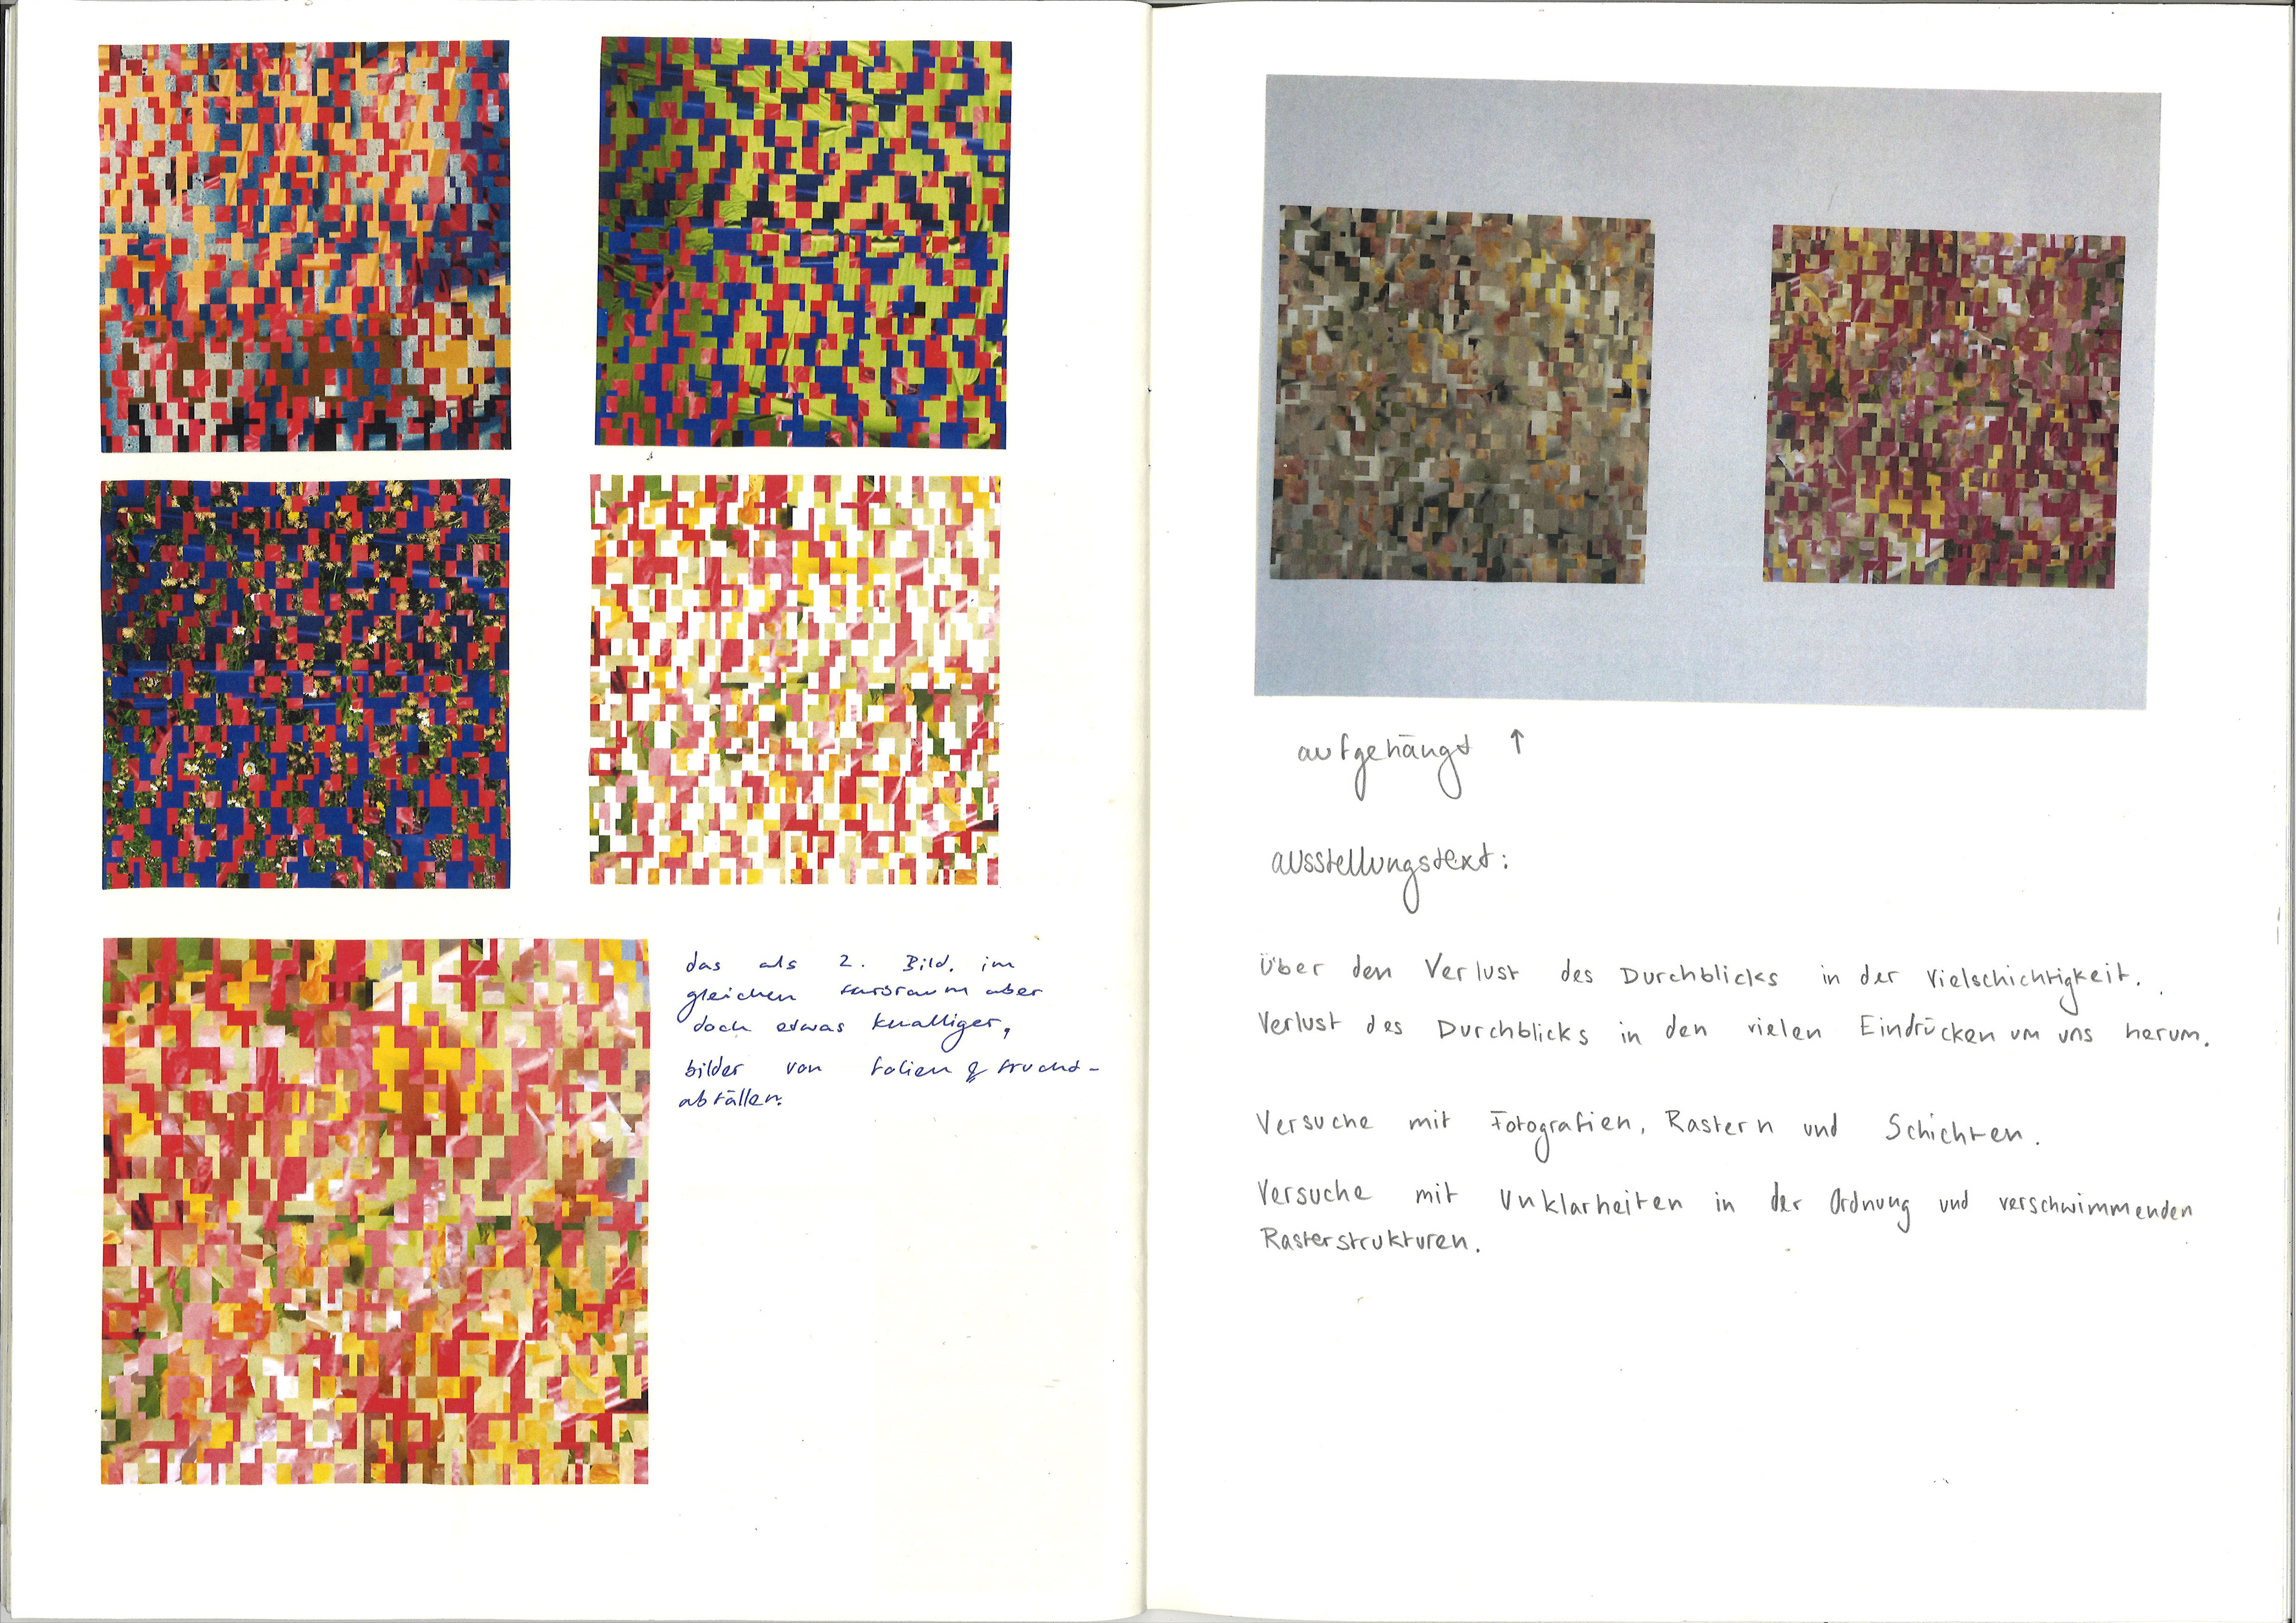 das als 2. Bild, im
gleichen farbraum aber
doch etwas knalliger,
bilder von folien & frucht-
abfällen.
aufgehängt ↑
ausstellungstext:
Über den Verlust des Durchblicks in der Vielschichtigkeit.
Verlust des Durchblicks in den vielen Eindrücken um uns herum.
Versuche mit Fotografien, Rastern und Schichten.
Versuche mit Unklarheiten in der Ordnung und verschwimmenden
Rasterstrukturen.